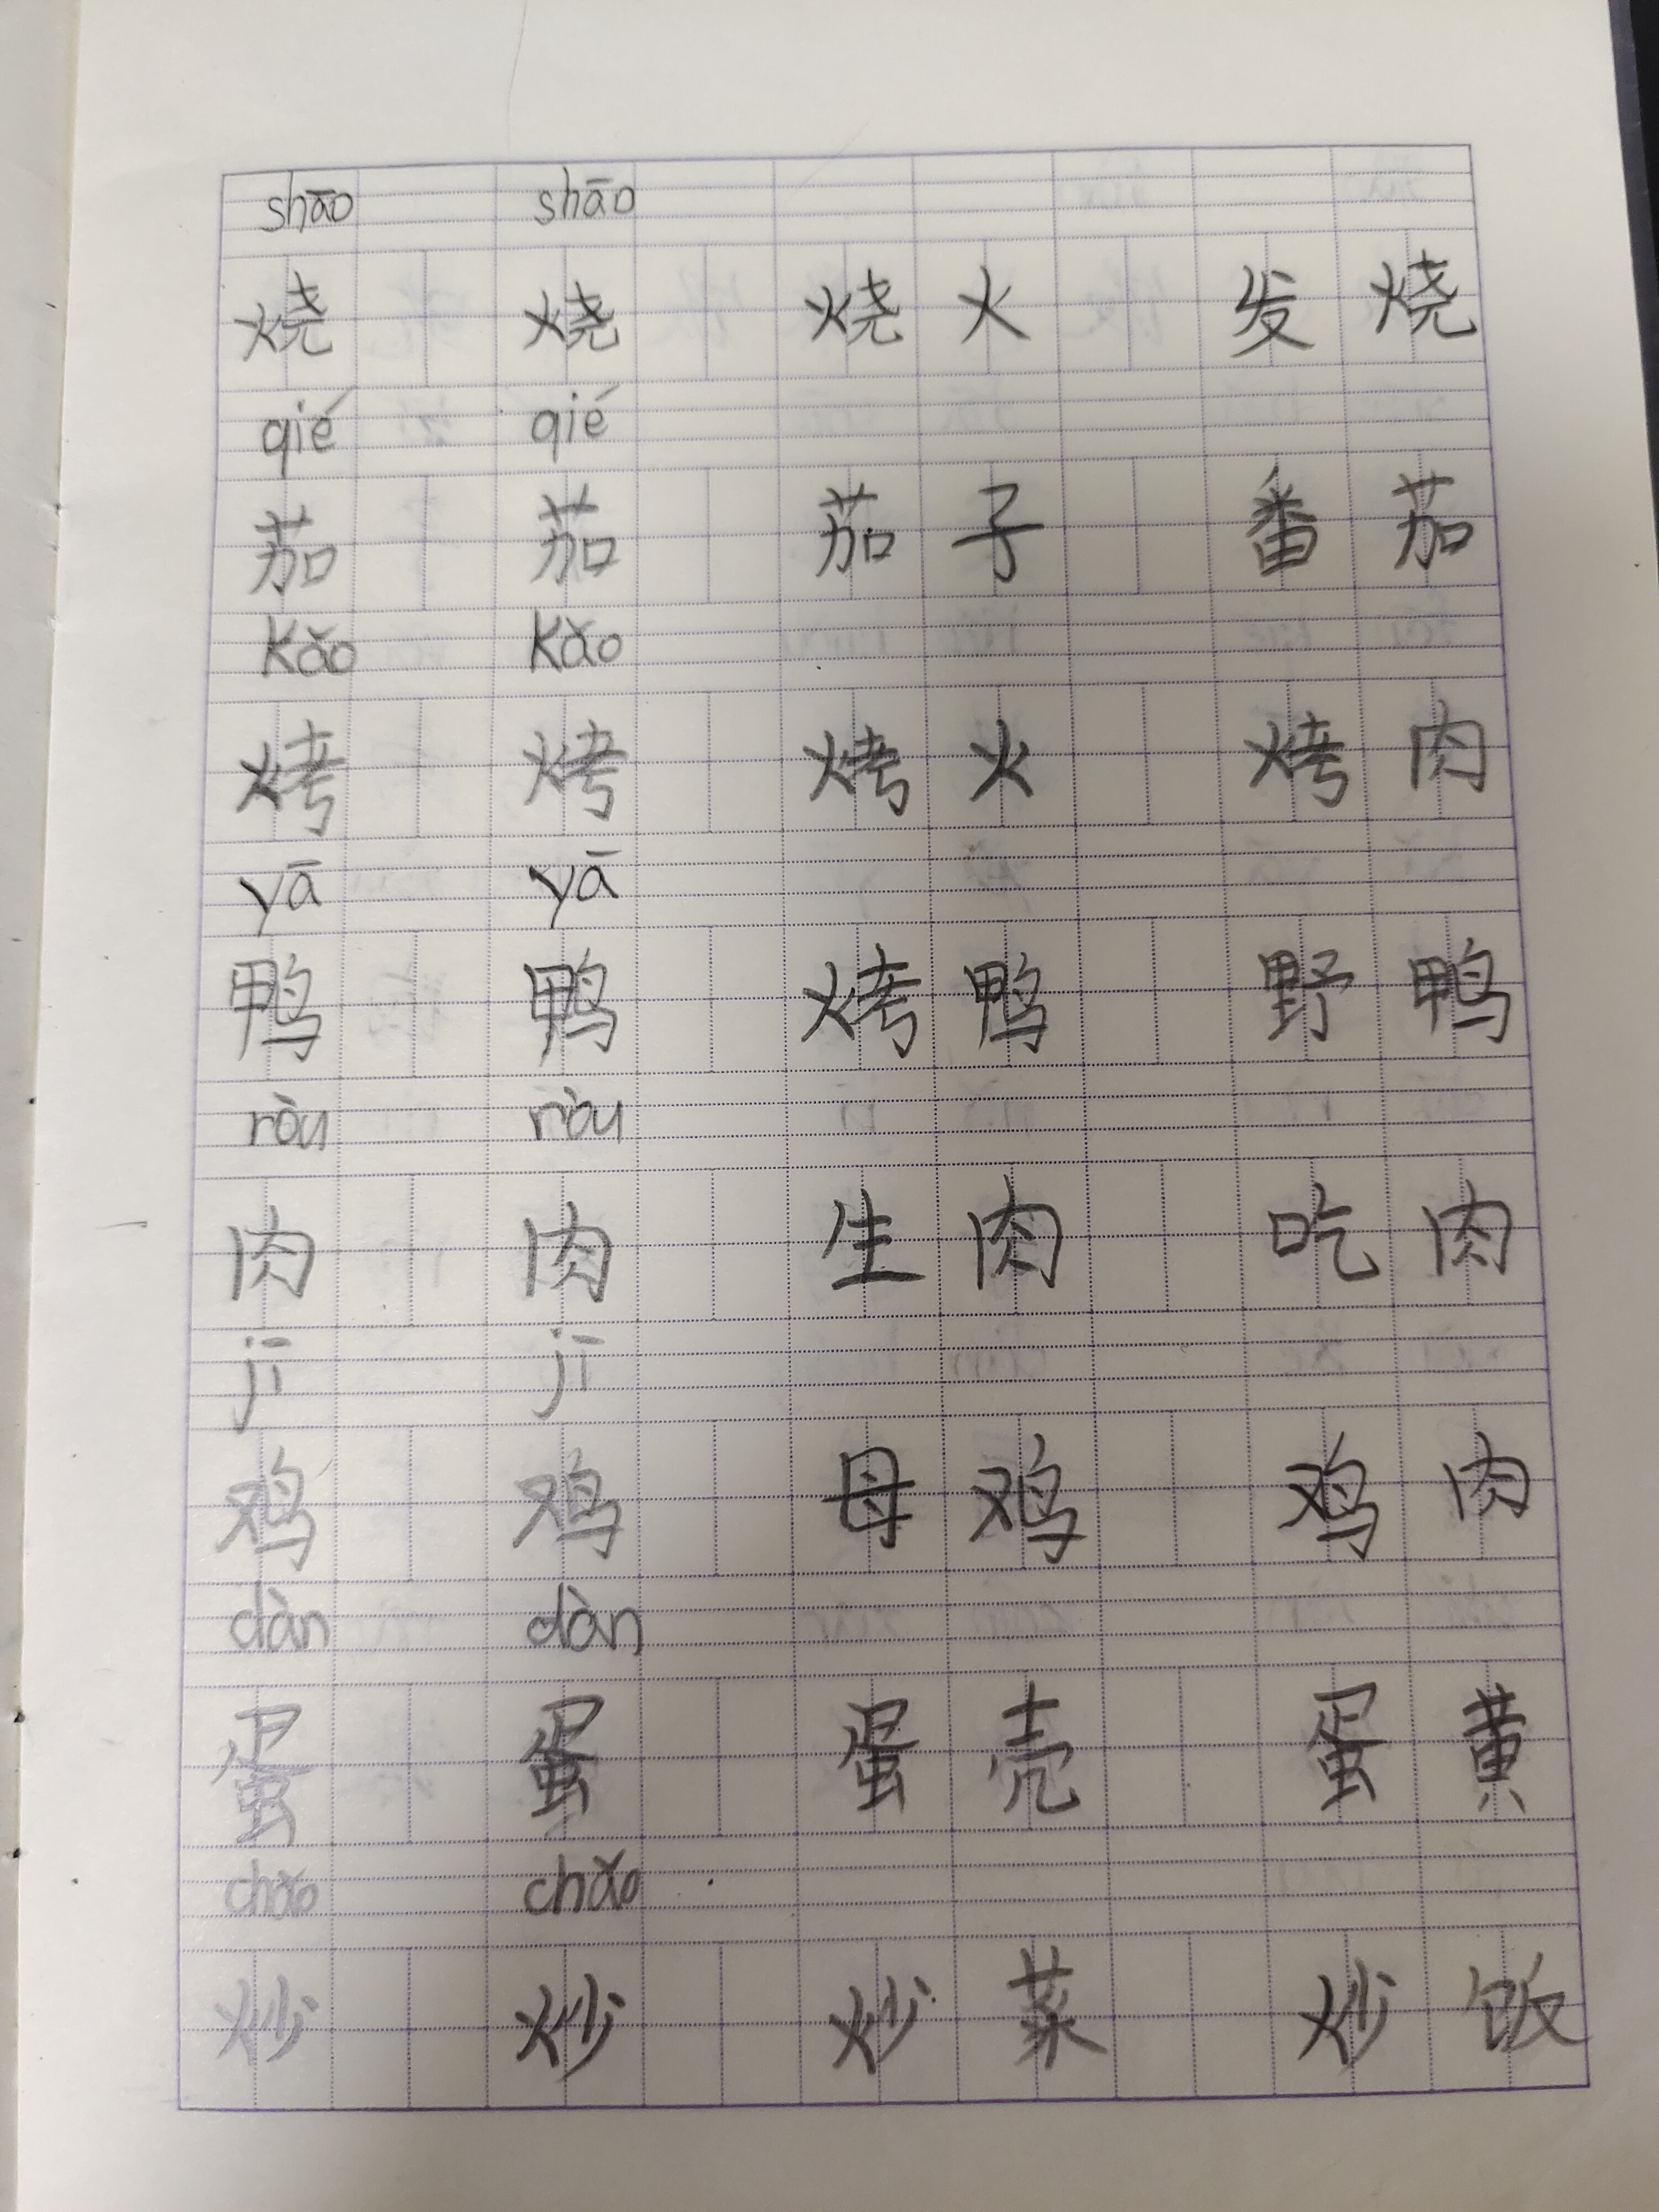 shāo shāo
烧 烧 烧火 发烧
qié qié
茄 茄 茄子 番茄
kǎo kǎo
烤 烤 烤火 烤肉
yā yā
鸭 鸭 烤鸭 野鸭
ròu ròu
肉 肉 生肉 吃肉
jī jī
鸡 鸡 母鸡 鸡肉
dàn dàn
蛋 蛋 蛋壳 蛋黄
chǎo chǎo
炒 炒 炒菜 炒饭